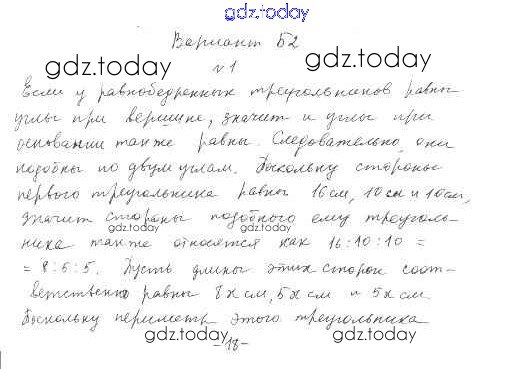 gdz.today
Вариант Б2
gdz.today gdz.today
№1
Если у равнобедренных треугольников равны
углы при вершине, значит и углы при
основании также равны. Следовательно, они
подобны по двум углам. Поскольку стороны
первого треугольника равны 16 см, 10 см и 10 см,
значит стороны подобного ему треуголь-
gdz.today gdz.today
ника также относятся как 16:10:10 =
= 8:5:5. Пусть длины этих сторон соот-
ветственно равны 8x см, 5x см и 5x см.
Поскольку периметр этого треугольника
gdz.today gdz.today
-18-